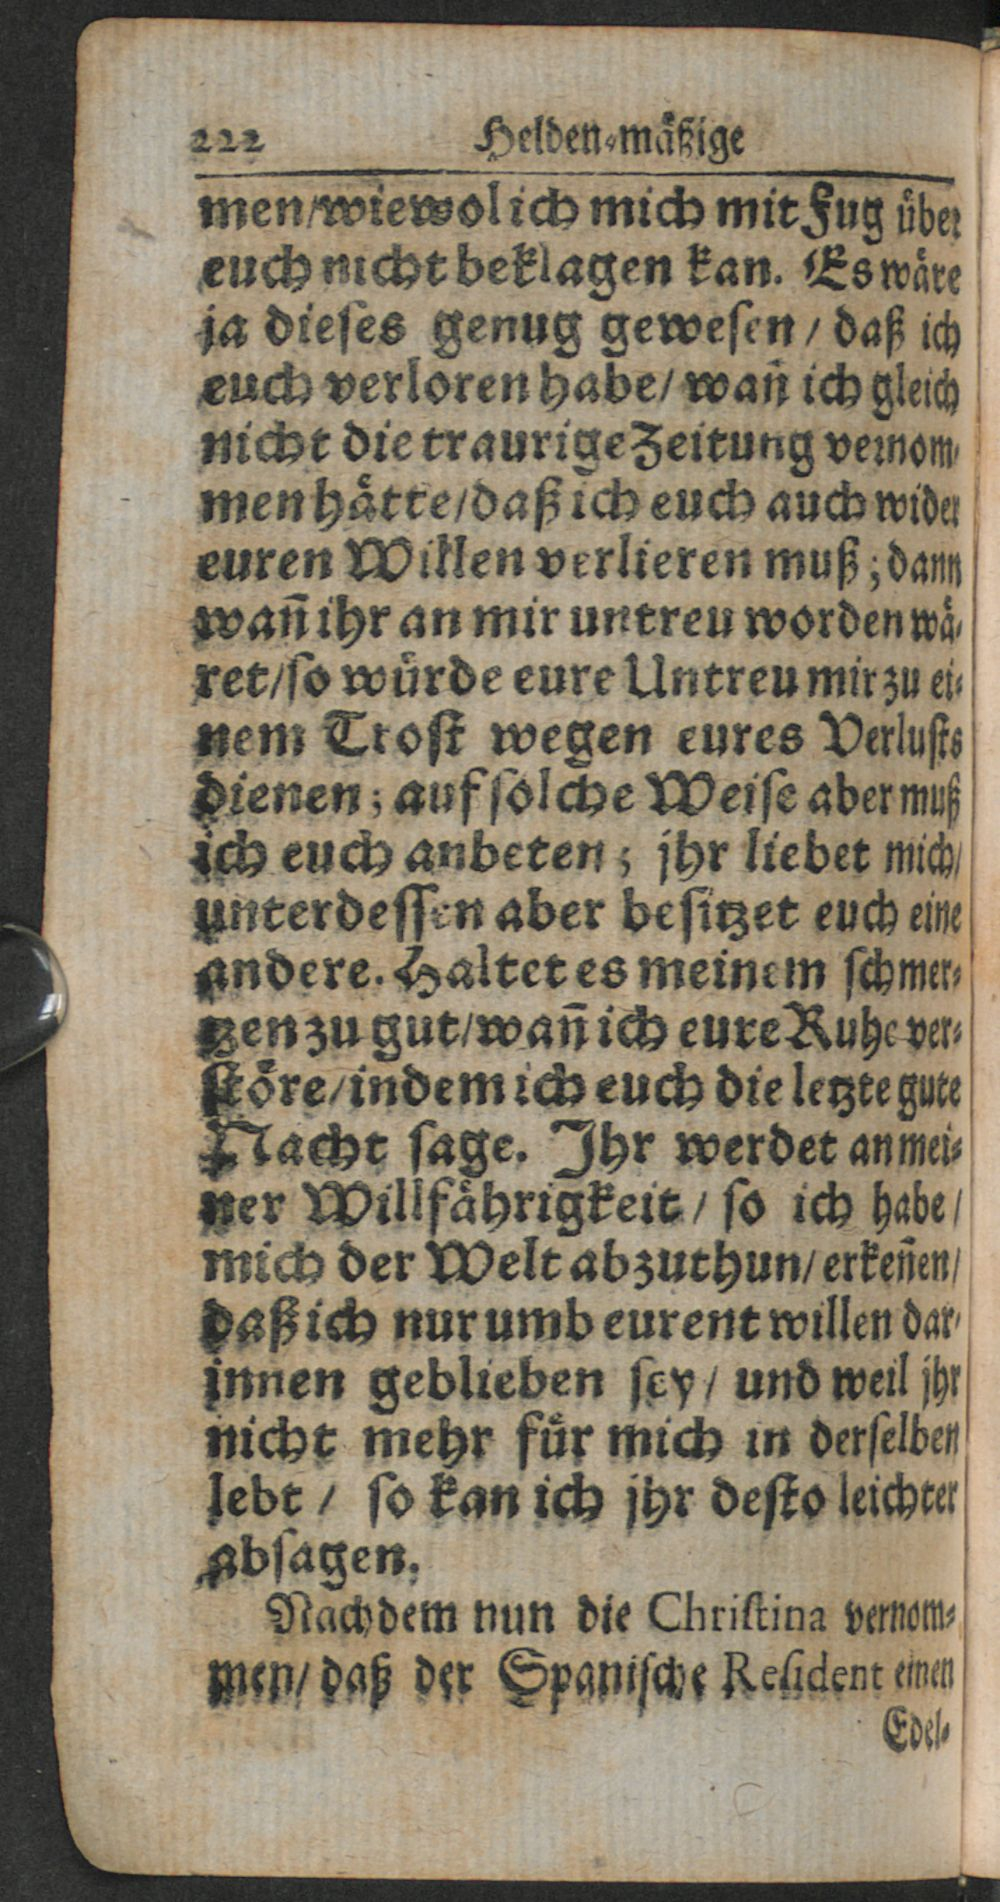 222 Helden-mäßige
men/wiewol ich mich mit Fug über
euch nicht beklagen kan. Es wäre
ja dieses genug gewesen / daß ich
euch verloren habe/ wañ ich gleich
nicht die traurige Zeitung vernom-
men hätte/daß ich euch auch wider
euren Willen verlieren muß; dann
wañ ihr an mir untreu worden wä-
ret/so würde eure Untreu mir zu ei-
nem Trost wegen eures Verlusts
dienen; auf solche Weise aber muß
ich euch anbeten; jhr liebet mich/
unterdessen aber besitzet euch eine
andere. Haltet es meinem schmer-
tzen zu gut/wañ ich eure Ruhe ver-
störe/indem ich euch die letzte gute
Nacht sage. Ihr werdet an mei-
ner Willfährigkeit / so ich habe /
mich der Welt abzuthun/ erkeñen/
daß ich nur umb eurent willen dar-
innen geblieben sey / und weil jhr
nicht mehr für mich in derselben
lebt / so kan ich jhr desto leichter
absagen.
Nachdem nun die Christina vernom-
men/ daß der Spanische Resident einen
Edel-